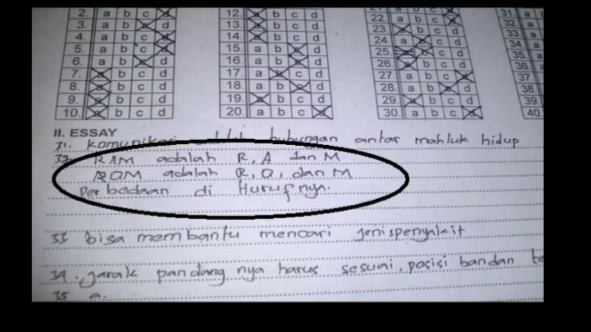 2. a b c d 12. a b c d 22. a b c d 31. a
3. a b c d 13. a b c d 23. b c d 32. a
4. a b c 14. a b c 24. a c d 33.
5. a b c 15. a b d 25. c d 34.
6. a b d 16. a b d 26. b c d 35.
7. b c d 17. a c d 27. a b c 36.
8. b c d 18. a b d 28. a b d 37.
9. b c d 19. b c d 29. b c d 38.
10. b c d 20. a b c 30. a b c 39.
40.
II. ESSAY
31. Komunikasi adalah hubungan antar mahluk hidup
32. RAM adalah R, A dan M
ROM adalah R, O, dan M
Perbedaan di Hurufnya.
33 bisa membantu mencari jenispenyakit
34. jarak pandang nya harus sesuai, posisi bandan
35 a.